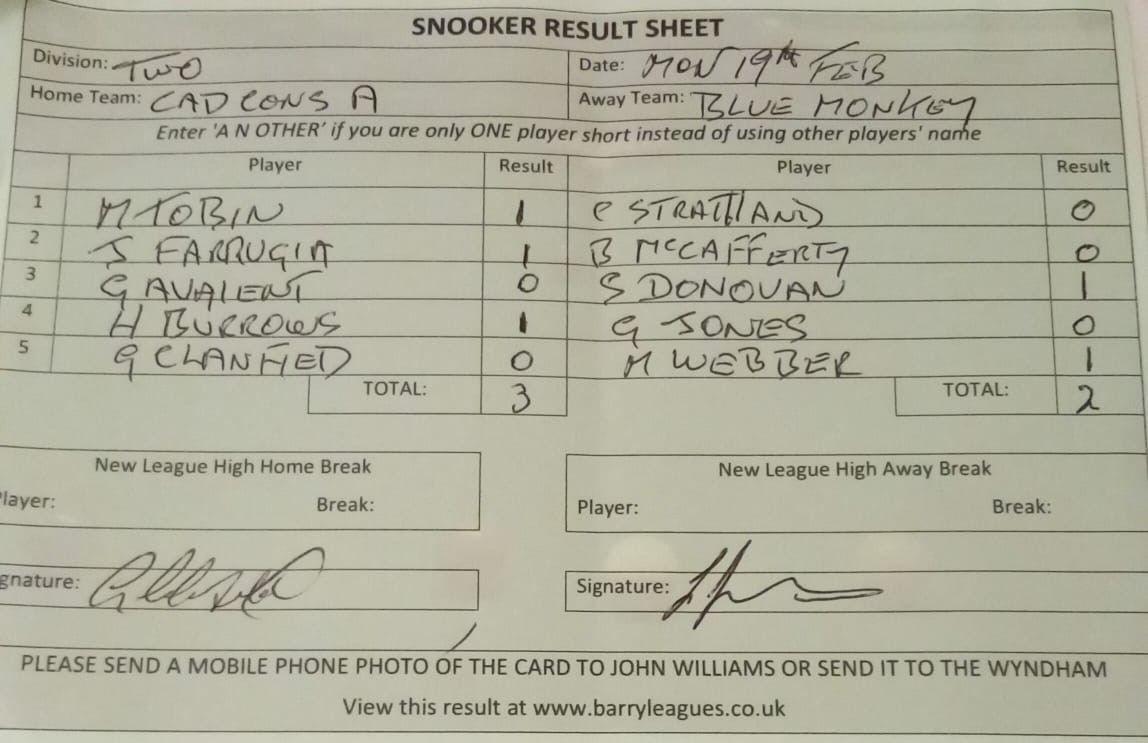 SNOOKER RESULT SHEET
Division: TWO Date: MON 19th FEB
Home Team: CAD CONS A Away Team: BLUE MONKEY
Enter 'A N OTHER' if you are only ONE player short instead of using other players' name
Player Result Player Result
1 M TOBIN 1 C STRATHLAND 0
2 J FARRUGIA 1 B McCAFFERTY 0
3 G AVALENT 0 S DONOVAN 1
4 H BURROWS 1 G JONES 0
5 G CLANFIED 0 M WEBBER 1
TOTAL: 3 TOTAL: 2
New League High Home Break New League High Away Break
layer: Break: Player: Break:
gnature: Signature:
PLEASE SEND A MOBILE PHONE PHOTO OF THE CARD TO JOHN WILLIAMS OR SEND IT TO THE WYNDHAM
View this result at www.barryleagues.co.uk